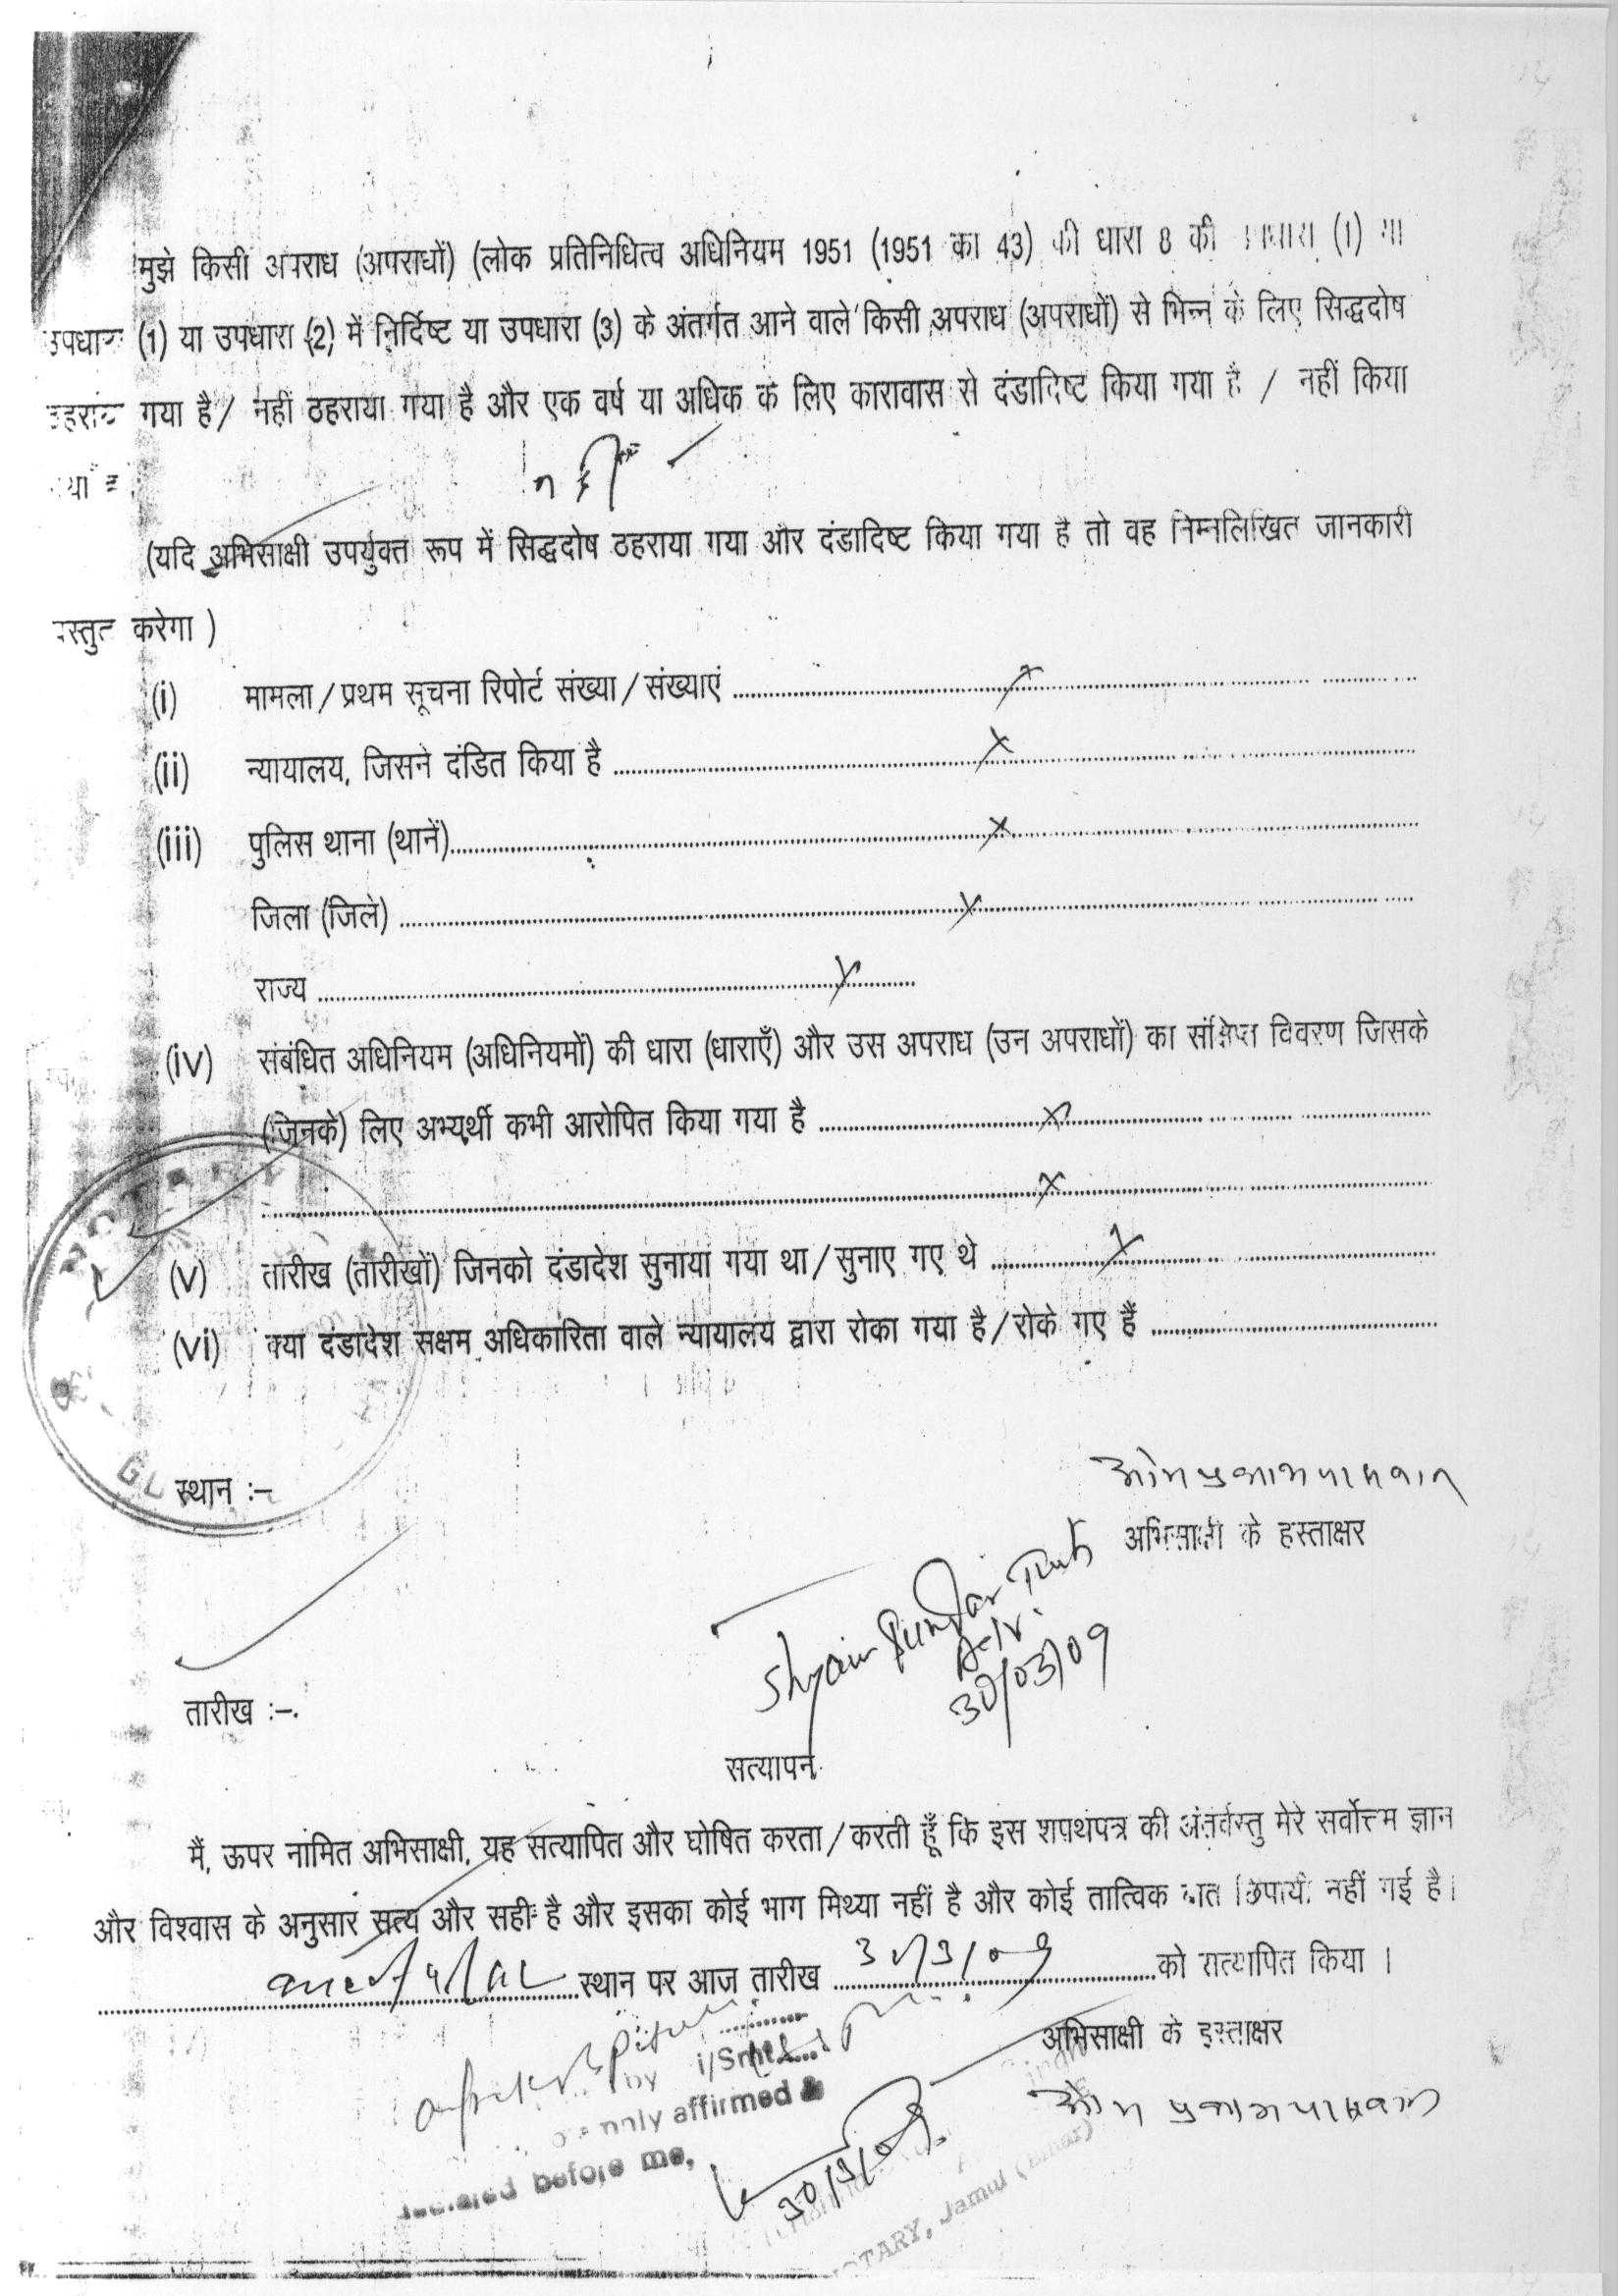 मुझे किसी अपराध (अपराधों) (लोक प्रतिनिधित्व अधिनियम 1951 (1951 का 43) की धारा 8 की (1) या
उपधारा (1) या उपधारा (2) में निर्दिष्ट या उपधारा (3) के अंतर्गत आने वाले किसी अपराध (अपराधों) से भिन्न के लिए सिद्धदोष
ठहराया गया है/ नहीं ठहराया गया है और एक वर्ष या अधिक के लिए कारावास से दंडादिष्ट किया गया है / नहीं किया
गया है
नहीं
(यदि अभिसाक्षी उपर्युक्त रूप में सिद्धदोष ठहराया गया और दंडादिष्ट किया गया है तो वह निम्नलिखित जानकारी
प्रस्तुत करेगा )
(i) मामला/प्रथम सूचना रिपोर्ट संख्या/संख्याएं .......... x ..........
(ii) न्यायालय, जिसने दंडित किया है .......... x ..........
(iii) पुलिस थाना (थानें).......... x ..........
जिला (जिले) .......... x ..........
राज्य .......... x ..........
(iv) संबंधित अधिनियम (अधिनियमों) की धारा (धाराएँ) और उस अपराध (उन अपराधों) का संक्षिप्त विवरण जिसके
(जिनके) लिए अभ्यर्थी कभी आरोपित किया गया है .......... x ..........
.......... x ..........
(v) तारीख (तारीखों) जिनको दंडादेश सुनाया गया था/सुनाए गए थे .......... x ..........
(vi) क्या दंडादेश सक्षम अधिकारिता वाले न्यायालय द्वारा रोका गया है/रोके गए हैं ..........
स्थान :-
ओम प्रकाश पासवान
अभिसाक्षी के हस्ताक्षर
Shyam Sundar
30/03/09
तारीख :-
सत्यापन
मैं, ऊपर नामित अभिसाक्षी, यह सत्यापित और घोषित करता/करती हूँ कि इस शपथपत्र की अंतर्वस्तु मेरे सर्वोत्तम ज्ञान
और विश्वास के अनुसार सत्य और सही है और इसका कोई भाग मिथ्या नहीं है और कोई तात्विक बात छिपायी नहीं गई है।
.......... स्थान पर आज तारीख 30/3/09 को सत्यापित किया ।
अभिसाक्षी के हस्ताक्षर
ओम प्रकाश पासवान
by i/Smt.
affirmed &
declared before me,
30/3/09
NOTARY, Jamui (Bihar)